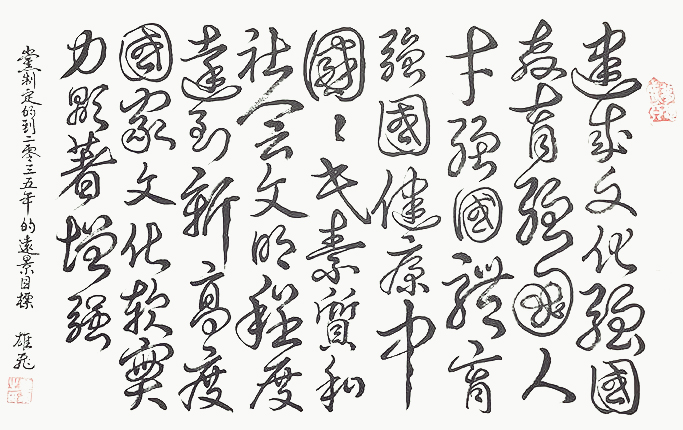 建成文化強國
教育強國人
才強國體育
強國健康中
國國民素質和
社会文明程度
達到新高度
國家文化软實
力顯著增强
黨制定的到二零三五年的遠景目標
雄飛